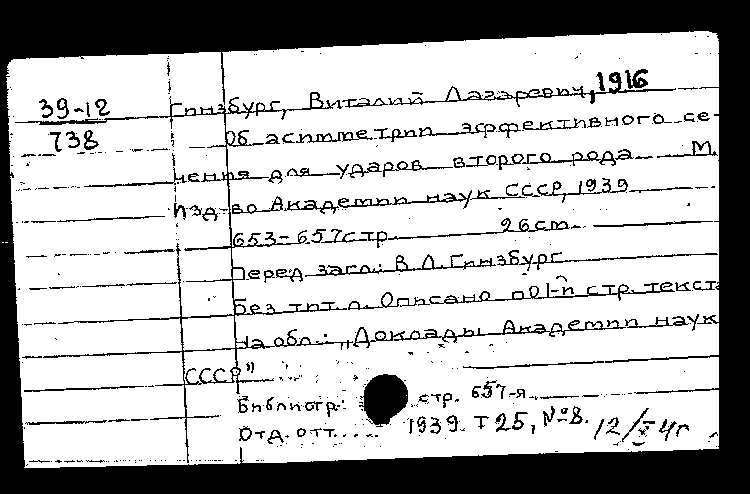 39-12
738
Гинзбург, Виталий Лазаревич, 1916
Об асимметрии эффективного се-
чения для ударов второго рода М.
Изд-во Академии наук СССР, 1939
653-657 стр. 26 cm.
Перед загл.: В.Л.Гинзбург
Без тит. л. Описано по 1-й стр. текста
На обл.: „Доклады Академии наук
СССР"
Библиогр: стр. 657-я
Отд. отт. 1939. Т 25, №8. 12/X 4г